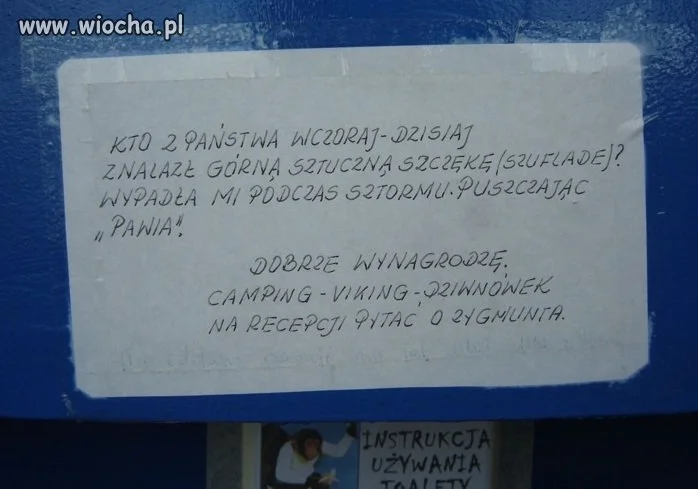 www.wiocha.pl
KTO Z PAŃSTWA WCZORAJ-DZISIAJ
ZNALAZŁ GÓRNĄ SZTUCZNĄ SZCZĘKĘ (SZUFLADE)?
WYPADŁA MI PODCZAS SZTORMU. PUSZCZAJĄC
„PAWIA".
DOBRZE WYNAGRODZĘ.
CAMPING-VIKING-DZIWNÓWEK
NA RECEPCJI PYTAĆ O ZYGMUNTA.
INSTRUKCJA
UŻYWANIA
TOALETY